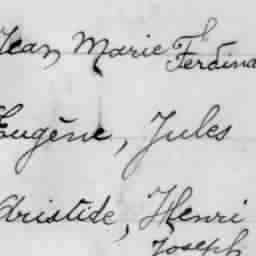 Jean Marie Ferdina
Eugène, Jules
Aristide, Henri
Joseph